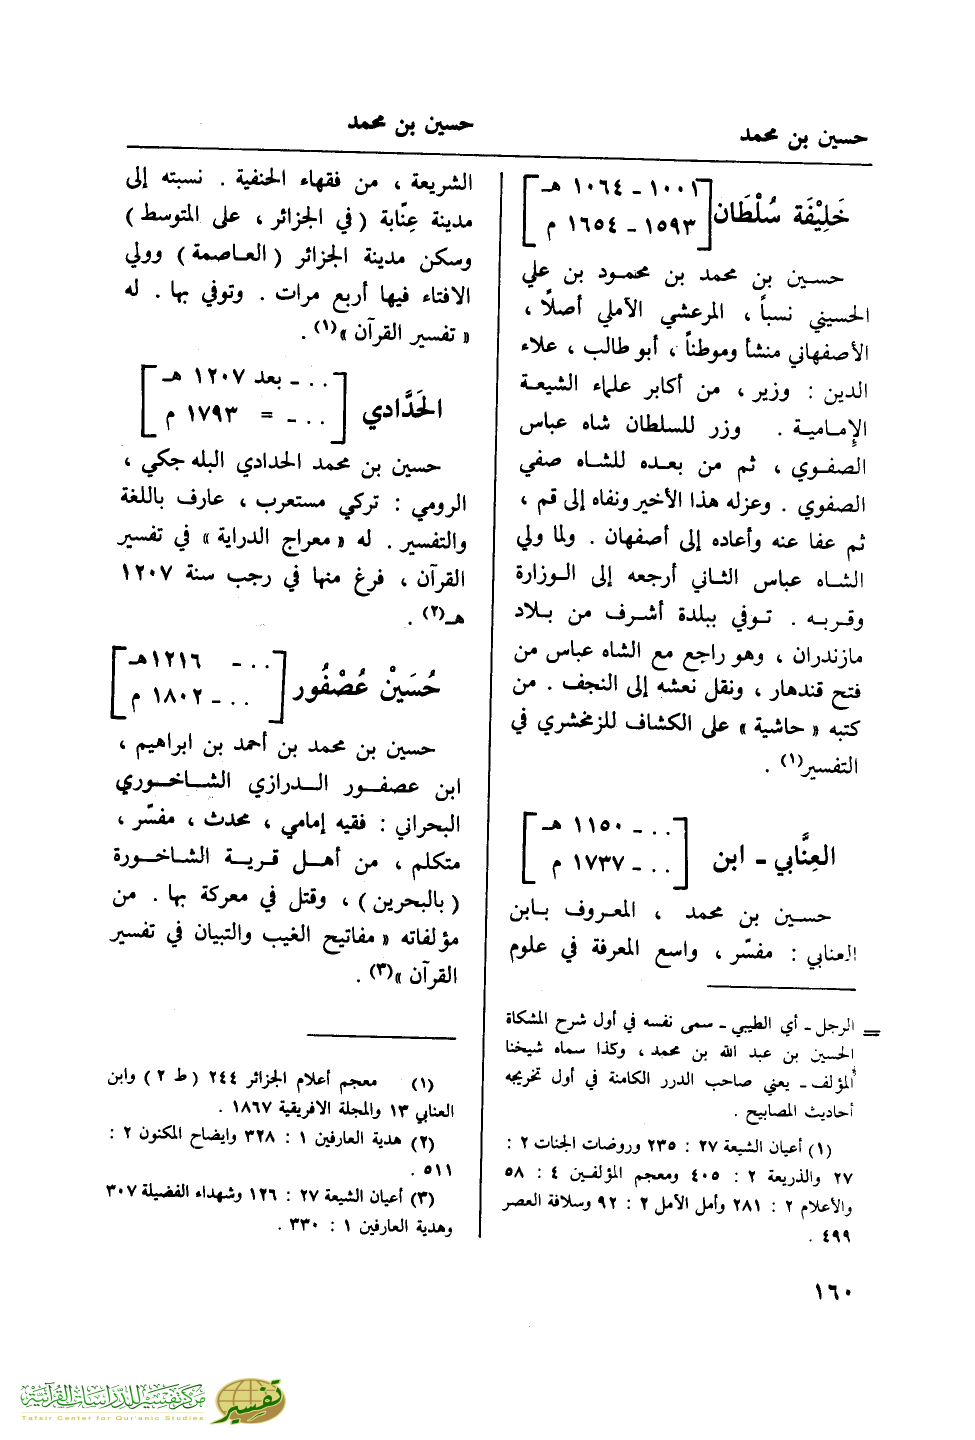 حسين بن محمد
حسين بن محمد
خَلِيْفَة سُلْطَان
١٠٠١ ـ ١٠٦٤ هـ
١٥٩٣ ـ ١٦٥٤ م
حسين بن محمد بن محمود بن علي
الحسيني نسباً ، المرعشي الآملي أصلاً ،
الأصفهاني منشأ وموطناً ، أبو طالب ، علاء
الدين : وزير ، من أكابر علماء الشيعة
الإمامية . وزر للسلطان شاه عباس
الصفوي ، ثم من بعده للشاه صفي
الصفوي . وعزله هذا الأخير ونفاه إلى قم ،
ثم عفا عنه وأعاده إلى أصفهان . ولما ولي
الشاه عباس الثاني أرجعه إلى الوزارة
وقربه . توفي ببلدة أشرف من بلاد
مازندران ، وهو راجع مع الشاه عباس من
فتح قندهار ، ونقل نعشه إلى النجف . من
كتبه « حاشية » على الكشاف للزمخشري في
التفسير(١) .
العِنَّابي ـ ابن
.. ـ ١١٥٠ هـ
.. ـ ١٧٣٧ م
حسين بن محمد ، المعروف بابن
العنابي : مفسّر ، واسع المعرفة في علوم
= الرجل ـ أي الطيبي ـ سمى نفسه في أول شرح المشكاة
الحسين بن عبد الله بن محمد ، وكذا سماه شيخنا
المؤلف ـ يعني صاحب الدرر الكامنة في أول تخريجه
أحاديث المصابيح .
(١) أعيان الشيعة ٢٧ : ٢٣٥ وروضات الجنات ٢ :
٢٧ والذريعة ٢ : ٤٠٥ ومعجم المؤلفين ٤ : ٥٨
والأعلام ٢ : ٢٨١ وأمل الآمل ٢ : ٩٢ وسلافة العصر
٤٩٩ .
الشريعة ، من فقهاء الحنفية . نسبته إلى
مدينة عِنّابة (في الجزائر ، على المتوسط)
وسكن مدينة الجزائر (العاصمة) وولي
الافتاء فيها أربع مرات . وتوفي بها . له
« تفسير القرآن »(١) .
الحَدَّادي
.. ـ بعد ١٢٠٧ هـ
.. ـ = ١٧٩٣ م
حسين بن محمد الحدادي البله جكي ،
الرومي : تركي مستعرب ، عارف باللغة
والتفسير . له « معراج الدراية » في تفسير
القرآن ، فرغ منها في رجب سنة ١٢٠٧
هـ(٢) .
حُسَيْن عُصْفُور
.. ـ ١٢١٦هـ
.. ـ ١٨٠٢ م
حسين بن محمد بن أحمد بن ابراهيم ،
ابن عصفور الدرازي الشاخوري
البحراني : فقيه إمامي ، محدث ، مفسّر ،
متكلم ، من أهل قرية الشاخورة
(بالبحرين) ، وقتل في معركة بها . من
مؤلفاته « مفاتيح الغيب والتبيان في تفسير
القرآن »(٣) .
(١) معجم أعلام الجزائر ٢٤٤ (ط ٢) وابن
العنابي ١٣ والمجلة الافريقية ١٨٦٧ .
(٢) هدية العارفين ١ : ٣٢٨ وايضاح المكنون ٢ :
٥١١ .
(٣) أعيان الشيعة ٢٧ : ١٢٦ وشهداء الفضيلة ٣٠٧
وهدية العارفين ١ : ٣٣٠ .
١٦٠
مركز تفسير للدراسات القرآنية
Tafsir Center for Qur'anic Studies
تفسير